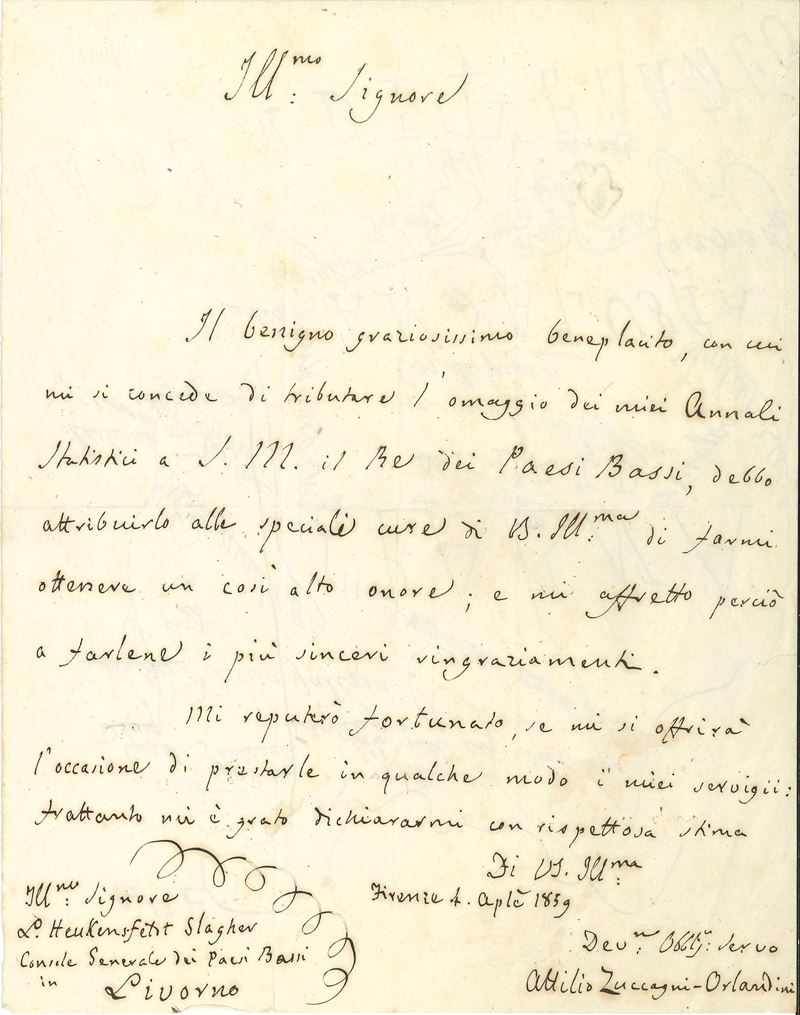 Ill.mo: Signore
Il benigno graziosissimo beneplacito, con cui
mi si concede di tributare l'omaggio dei miei Annali
Statistici a S. M. il Re dei Paesi Bassi, debbo
attribuirlo alle speciali cure di VS. Ill.ma: di farmi
ottenere un così alto onore; e mi affretto perciò
a farlene i più sinceri ringraziamenti.
Mi reputerò fortunato, se mi si offrirà
l'occasione di prestarle in qualche modo i miei servigii:
frattanto mi è grato dichiararmi con rispettosa stima
Di VS. Ill.ma:
Firenze 4. Aple 1859
Ill.mo: Signore
Heukensfeldt Slagher
Console Generale dei Paesi Bassi
in Livorno
Dev.mo Obblig: servo
Attilio Zuccagni-Orlandini